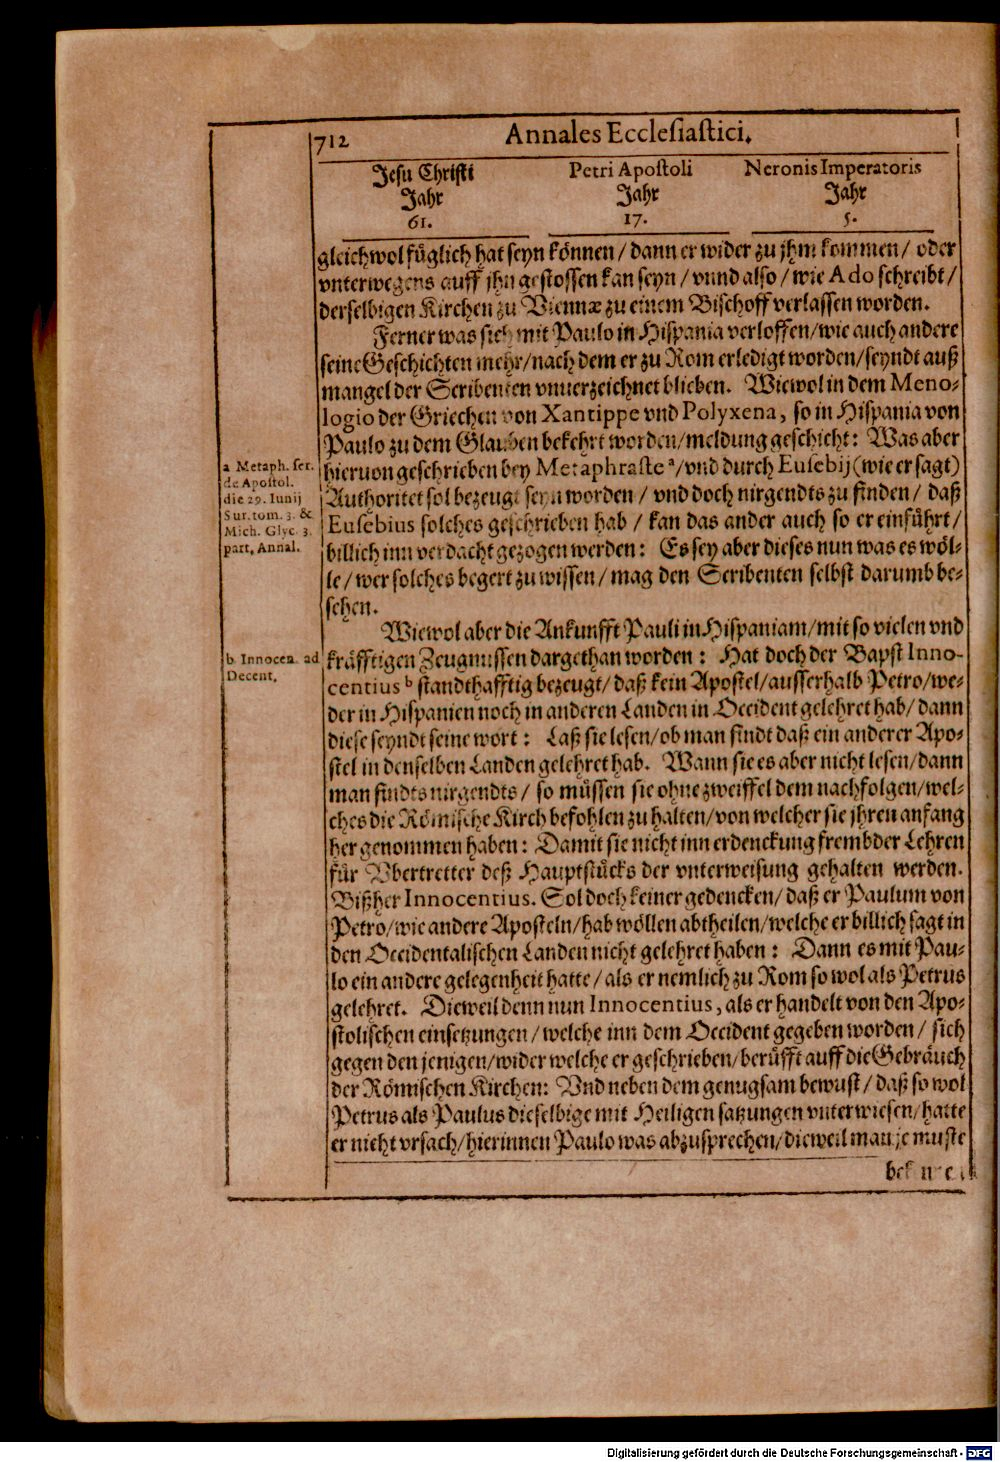 712 Annales Ecclesiastici.
Jesu Christi Petri Apostoli Neronis Imperatoris
Jahr Jahr Jahr
61. 17. 5.
gleichwol füglich hat seyn können / dann er wider zu jhm kommen / oder
vnterwegens auff jhn gestossen kan seyn / vnnd also / wie Ado schreibt /
derselbigen Kirchen zu Viennæ zu einem Bischoff verlassen worden.
Ferner was sich mit Paulo in Hispania verloffen/wie auch andere
seine Geschichten mehr/nach dem er zu Rom erledigt worden/seyndt auß
mangel der Scribenten vnuerzeichnet blieben. Wiewol in dem Meno-
logio der Griechen von Xantippe vnd Polyxena, so in Hispania von
Paulo zu dem Glauben bekehrt worden/meldung geschicht: Was aber
a Metaph. ser.
de Apostol.
die 29. Iunij
Sur. tom. 3. &
Mich. Glyc. 3.
part, Annal.
hieruon geschrieben bey Metaphraste a/vnd durch Eusebij (wie er sagt)
Authoritet sol bezeugt seyn worden / vnd doch nirgendts zu finden / daß
Eusebius solches geschrieben hab / kan das ander auch so er einführt /
billich inn verdacht gezogen werden: Es sey aber dieses nun was es wöl-
le / wer solches begert zu wissen / mag den Scribenten selbst darumb be-
sehen.
Wiewol aber die Ankunfft Pauli in Hispaniam/mit so vielen vnd
b Innocen. ad
Decent.
kräfftigen Zeugnussen dargethan worden: Hat doch der Bapst Inno-
centius b standthafftig bezeugt/daß kein Apostel/ausserhalb Petro/we-
der in Hispanien noch in anderen Landen in Occident gelehret hab/dann
diese seyndt seine wort: Laß sie lesen/ob man findt daß ein anderer Apo-
stel in denselben Landen gelehret hab. Wann sie es aber nicht lesen/dann
man findts nirgendts / so müssen sie ohne zweiffel dem nachfolgen/wel-
ches die Römische Kirch befohlen zu halten/von welcher sie jhren anfang
her genommen haben: Damit sie nicht inn erdenckung frembder Lehren
für Vbertretter deß Hauptstücks der vnterweisung gehalten werden.
Bißher Innocentius. Sol doch keiner gedencken/daß er Paulum von
Petro/wie andere Aposteln/hab wöllen abtheilen/welche er billich sagt in
den Occidentalischen Landen nicht gelehret haben: Dann es mit Pau-
lo ein andere gelegenheit hatte / als er nemlich zu Rom so wol als Petrus
gelehret. Dieweil denn nun Innocentius, als er handelt von den Apo-
stolischen einsetzungen / welche inn dem Occident gegeben worden / sich
gegen den jenigen/wider welche er geschrieben/berüfft auff die Gebräuch
der Römischen Kirchen: Vnd neben dem genugsam bewust / daß so wol
Petrus als Paulus dieselbige mit Heiligen satzungen vnterwiesen/hatte
er nicht vrsach/hierinnen Paulo was abzusprechen/dieweil man je muste
Digitalisierung gefördert durch die Deutsche Forschungsgemeinschaft - DFG